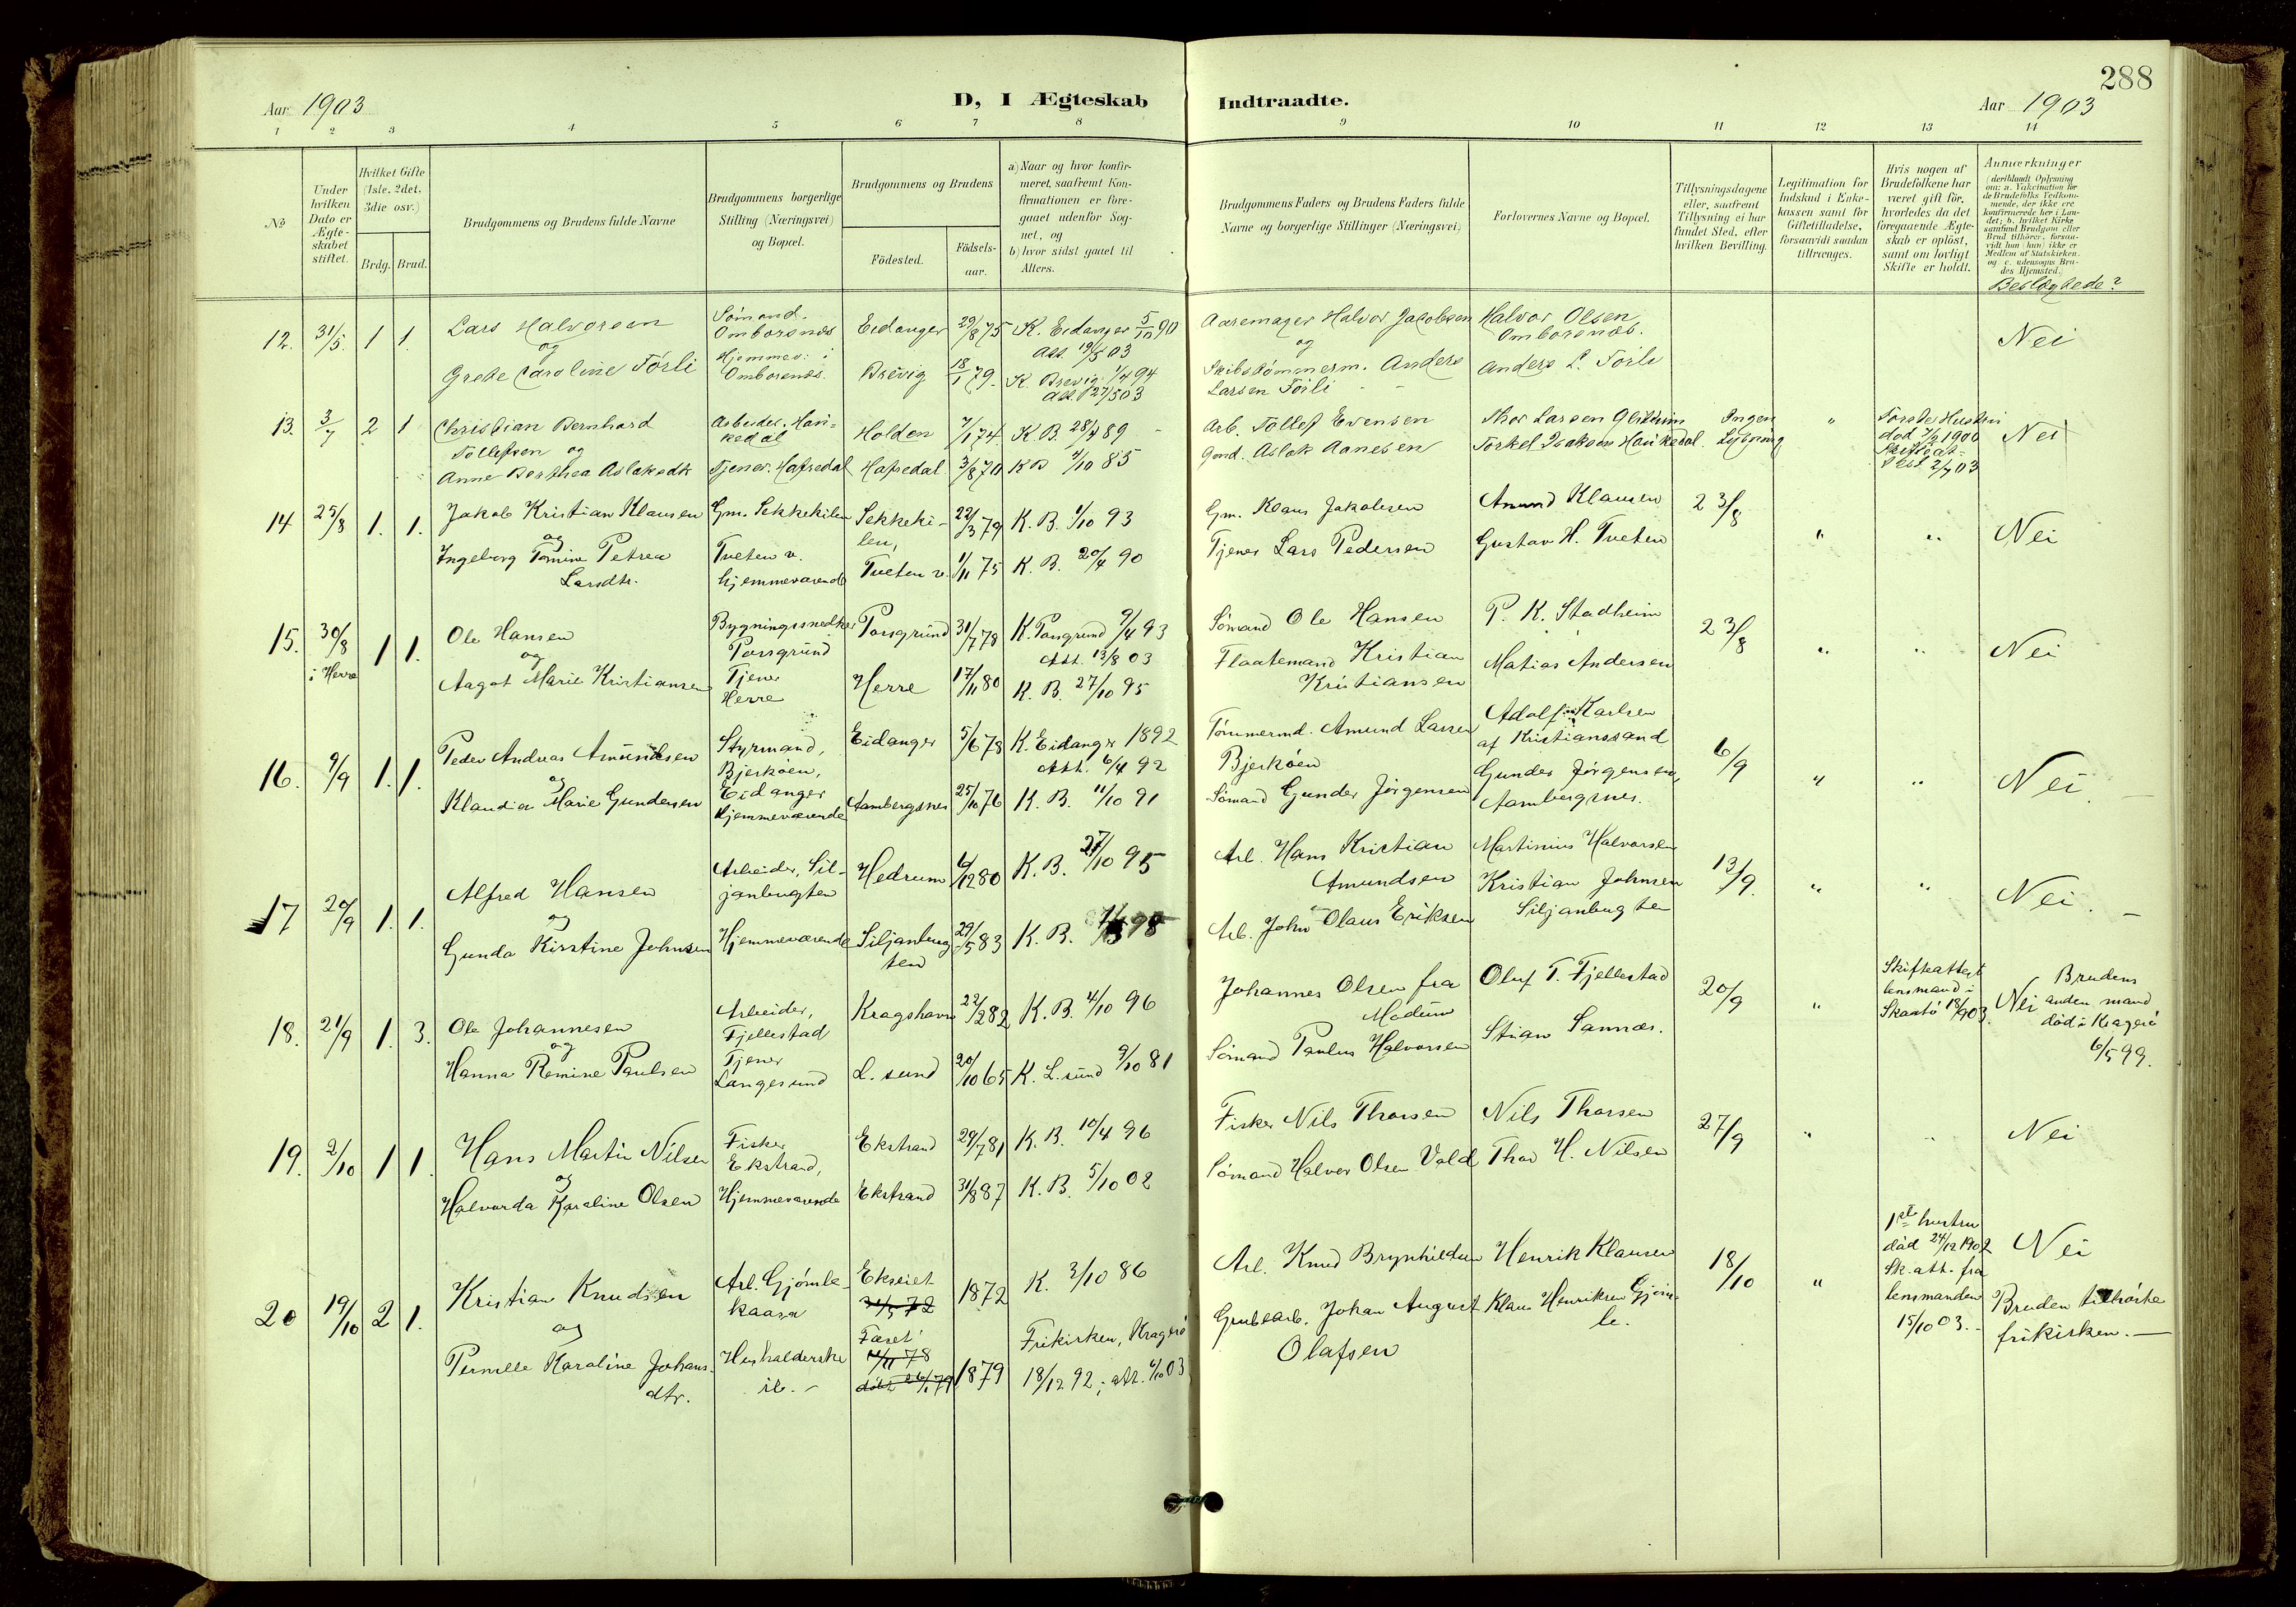 288
Aar 1903
D, I Ægteskab Indtraadte.
Aar 1903
1 2 3 4 5 6 7 8 9 10 11 12 13 14
No
Under hvilken Dato er Ægte-skabet stiftet.
Hvilket Gifte (1ste, 2det, 3die osv.)
Brdg. Brud.
Brudgommens og Brudens fulde Navne
Brudgommens borgerlige Stilling (Næringsvei) og Bopæl.
Brudgommens og Brudens
Födested.
Födsels-aar.
a) Naar og hvor konfir-meret, saafremt Kon-firmationen er fore-gaaet udenfor Sog-net, og
b) hvor sidst gaaet til Alters.
Brudgommens Faders og Brudens Faders fulde Navne og borgerlige Stillinger (Næringsvei)
Forlovernes Navne og Bopæl.
Tillysningsdagene eller, saafremt Tillysning ei har fundet Sted, efter hvilken Bevilling.
Legitimation for Indskud i Enke-kassen samt for Giftetilladelse, forsaavidt saadan tiltrænges.
Hvis nogen af Brudefolkene har været gift för, hvorledes da det foregaaende Ægte-skab er oplöst, samt om lovligt Skifte er holdt.
Anmærkninger
(deriblandt Oplysning om: a. Vakcination for de Brudefolks Vedkom-mende, der ikke ere konfirmerede her i Lan-det; b. hvilket Kirke-samfund Brudgom eller Brud tilhörer, forsaa-vidt han (hun) ikke er Medlem af Statskirken, og c. udensogns Bru-des Hjemsted.)
Beslægtede?
12. 31/5. 1 1. Lars Halvorsen
og
Grete Caroline Törli
Sömand.
Omborsnæs
Hjemmev: i
Omborsnæs.
Eidanger 29/8 75 K. Eidanger 5/10 90
Att. 19/5 03
Brevig 18/1 79. K. Brevig 1/4 94
Att. 27/5 03
Aaremager Halvor Jacobsen
og
Skibstömmerm. Anders
Larsen Törli
Halvor Olsen
Omborsnæs.
Anders L. Törli
Nei
13. 3/7 2 1 Christian Bernhard
Tollefsen og
Anne Berthea Aslaksdtr
Arbeider. Hau=
kedal
Tjener. Hafsedal
Holden 7/1 74 K B. 28/7 89
Hafsedal 3/8 70 KB 4/10 85
Arb. Tollef Evensen
Gmd. Aslak Aanesen
Thor Larsen
Torkel Isaksen Haukedal
Ingen
Lysning
"
Första Hustru
död 7/2 1900
Skifteat=
test 2/7 03
Nei
14 25/8 1. 1. Jakob Kristian Klausen
og
Ingeborg Tomine Petrea
Larsdtr.
Gm. Sekkekilen
Tveten v.
hjemmeværende
Sekkeki-
len,
22/3 79 K. B. 1/10 93
Tveten v. 1/11 75 K. B. 20/4 90
Gm. Klaus Jakobsen
Tjener Lars Pedersen
Amund Klausen
Gustav H. Tveten
23/8
" " Nei
15. 30/8
i Herre
1 1. Ole Hansen
og
Aagot Marie Kristiansen
Bygningssnedker
Porsgrund
Tjener
Herre
Porsgrund 31/7 78 K. Porsgrund 9/4 93
Att. 13/8 03
Herre 17/11 80 K. B. 27/10 95
Sömand Ole Hansen
Flaatemand Kristian
Kristiansen
P. K. Stadheim
Matias Andersen
23/8
" " Nei
16. 9/9 1. 1. Peder Andreas Amundsen
og
Klaudia Marie Gundersen
Styrmand,
Bjerköen,
Eidanger
Hjemmeværende
Eidanger 5/6 78 K. Eidanger 1892
Att. 6/4 92
Aambergsnes 25/10 76 K. B. 11/10 91
Tömmermd. Amund Larsen
Bjerköen
Sömand Gunder Jörgensen
Adolf Karlsen
af Kristianssand
Gunder Jörgensen,
Aambergsnes.
6/9
" " Nei. —
17 20/9 1. 1. Alfred Hansen
og
Gunda Kirstine Johnsen
Arbeider, Sil-
janbugten
Hjemmeværende
Hedrum 6/12 80 K. B. 27/10 95
Siljanbug
ten
29/5 83 K. B. 98
Arb. Hans Kristian
Amundsen
Arb. John Olaus Eriksen
Martinius Halvorsen
Kristian Johnsen
Siljanbugten
13/9.
" " Nei. —
18. 21/9 1. 3. Ole Johannesen
og
Hanna Romine Paulsen
Arbeider,
Fjellestad
Tjener
Langesund
Kragshavn 22/2 82 K. B. 4/10 96
L. sund 20/10 65 K. L. sund 9/10 81
Johannes Olsen fra
Modum
Sömand Paulus Halvorsen
Oluf T. Fjellestad
Stian Sannæs.
20/9
"
Skifteattest
lensmand i
Skaatö 18/9 03.
Nei
Brudens
anden mand
död i Kragerö
6/5 99.
19. 2/10 1 1. Hans Martin Nilsen
og
Halvorda Karaline Olsen
Fisker
Ekstrand,
Hjemmeværende
Ekstrand 29/7 81 K. B. 10/4 96
Ekstrand 31/8 87 K. B. 5/10 02
Fisker Nils Thorsen
Sömand Halvor Olsen Vold
Nils Thorsen
Thor H. Nilsen
27/9
" " Nei
20 19/10 2 1. Kristian Knudsen
og
Pernille Karaline Johans-
dtr.
Arb. Gjömle-
kaasa
Husholderske
ib. -
Ekseiet 1872 K. 3/10 86
11/11 78
döbt 26/1 79
1879
Frikirken, Kragerö
18/12 92; att. 6/10 03
Arb. Knud Brynhildsen
Grubearb. Johan August
Olafsen
Henrik Klausen
Klaus Henriksen Gjöm-
le.
18/10
"
1ste hustru
död 24/12 1902
Sk. att. fra
lensmanden
15/10 03. -
Nei
Bruden tilhörte
frikirken. —